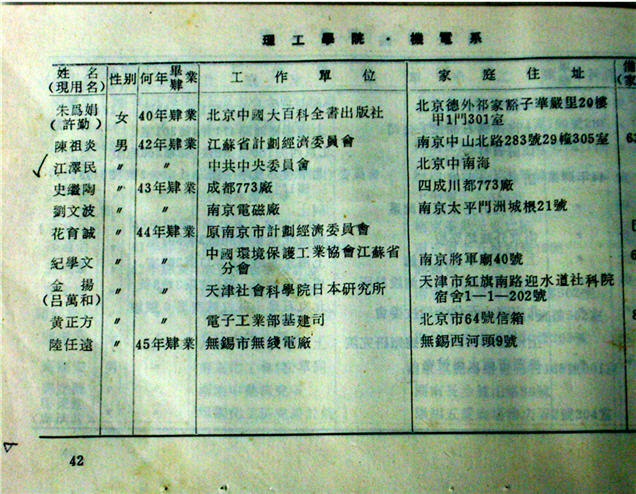 理工學院·機電系
姓名(現用名) 性别 何年畢肄業 工作單位 家庭住址
朱爲娟(許勤) 女 40年肄業 北京中國大百科全書出版社 北京德外祁家豁子華嚴里20樓甲1門301室
陳祖炎 男 42年肄業 江蘇省計劃經濟委員會 南京中山北路283號29幢305室
江澤民 〃 〃 中共中央委員會 北京中南海
史繼陶 〃 43年肄業 成都773廠 四成川都773廠
劉文波 〃 〃 南京電磁廠 南京太平門洲城根21號
花育誠 〃 44年肄業 原南京市計劃經濟委員會
紀學文 〃 〃 中國環境保護工業協會江蘇省分會 南京將軍廟40號
金揚(呂萬和) 〃 〃 天津社會科學院日本研究所 天津市紅旗南路迎水道社科院宿舍1—1—202號
黃正方 〃 〃 電子工業部基建司 北京市64號信箱
陸任遠 〃 45年肄業 無錫市無綫電廠 無錫西河頭9號
42